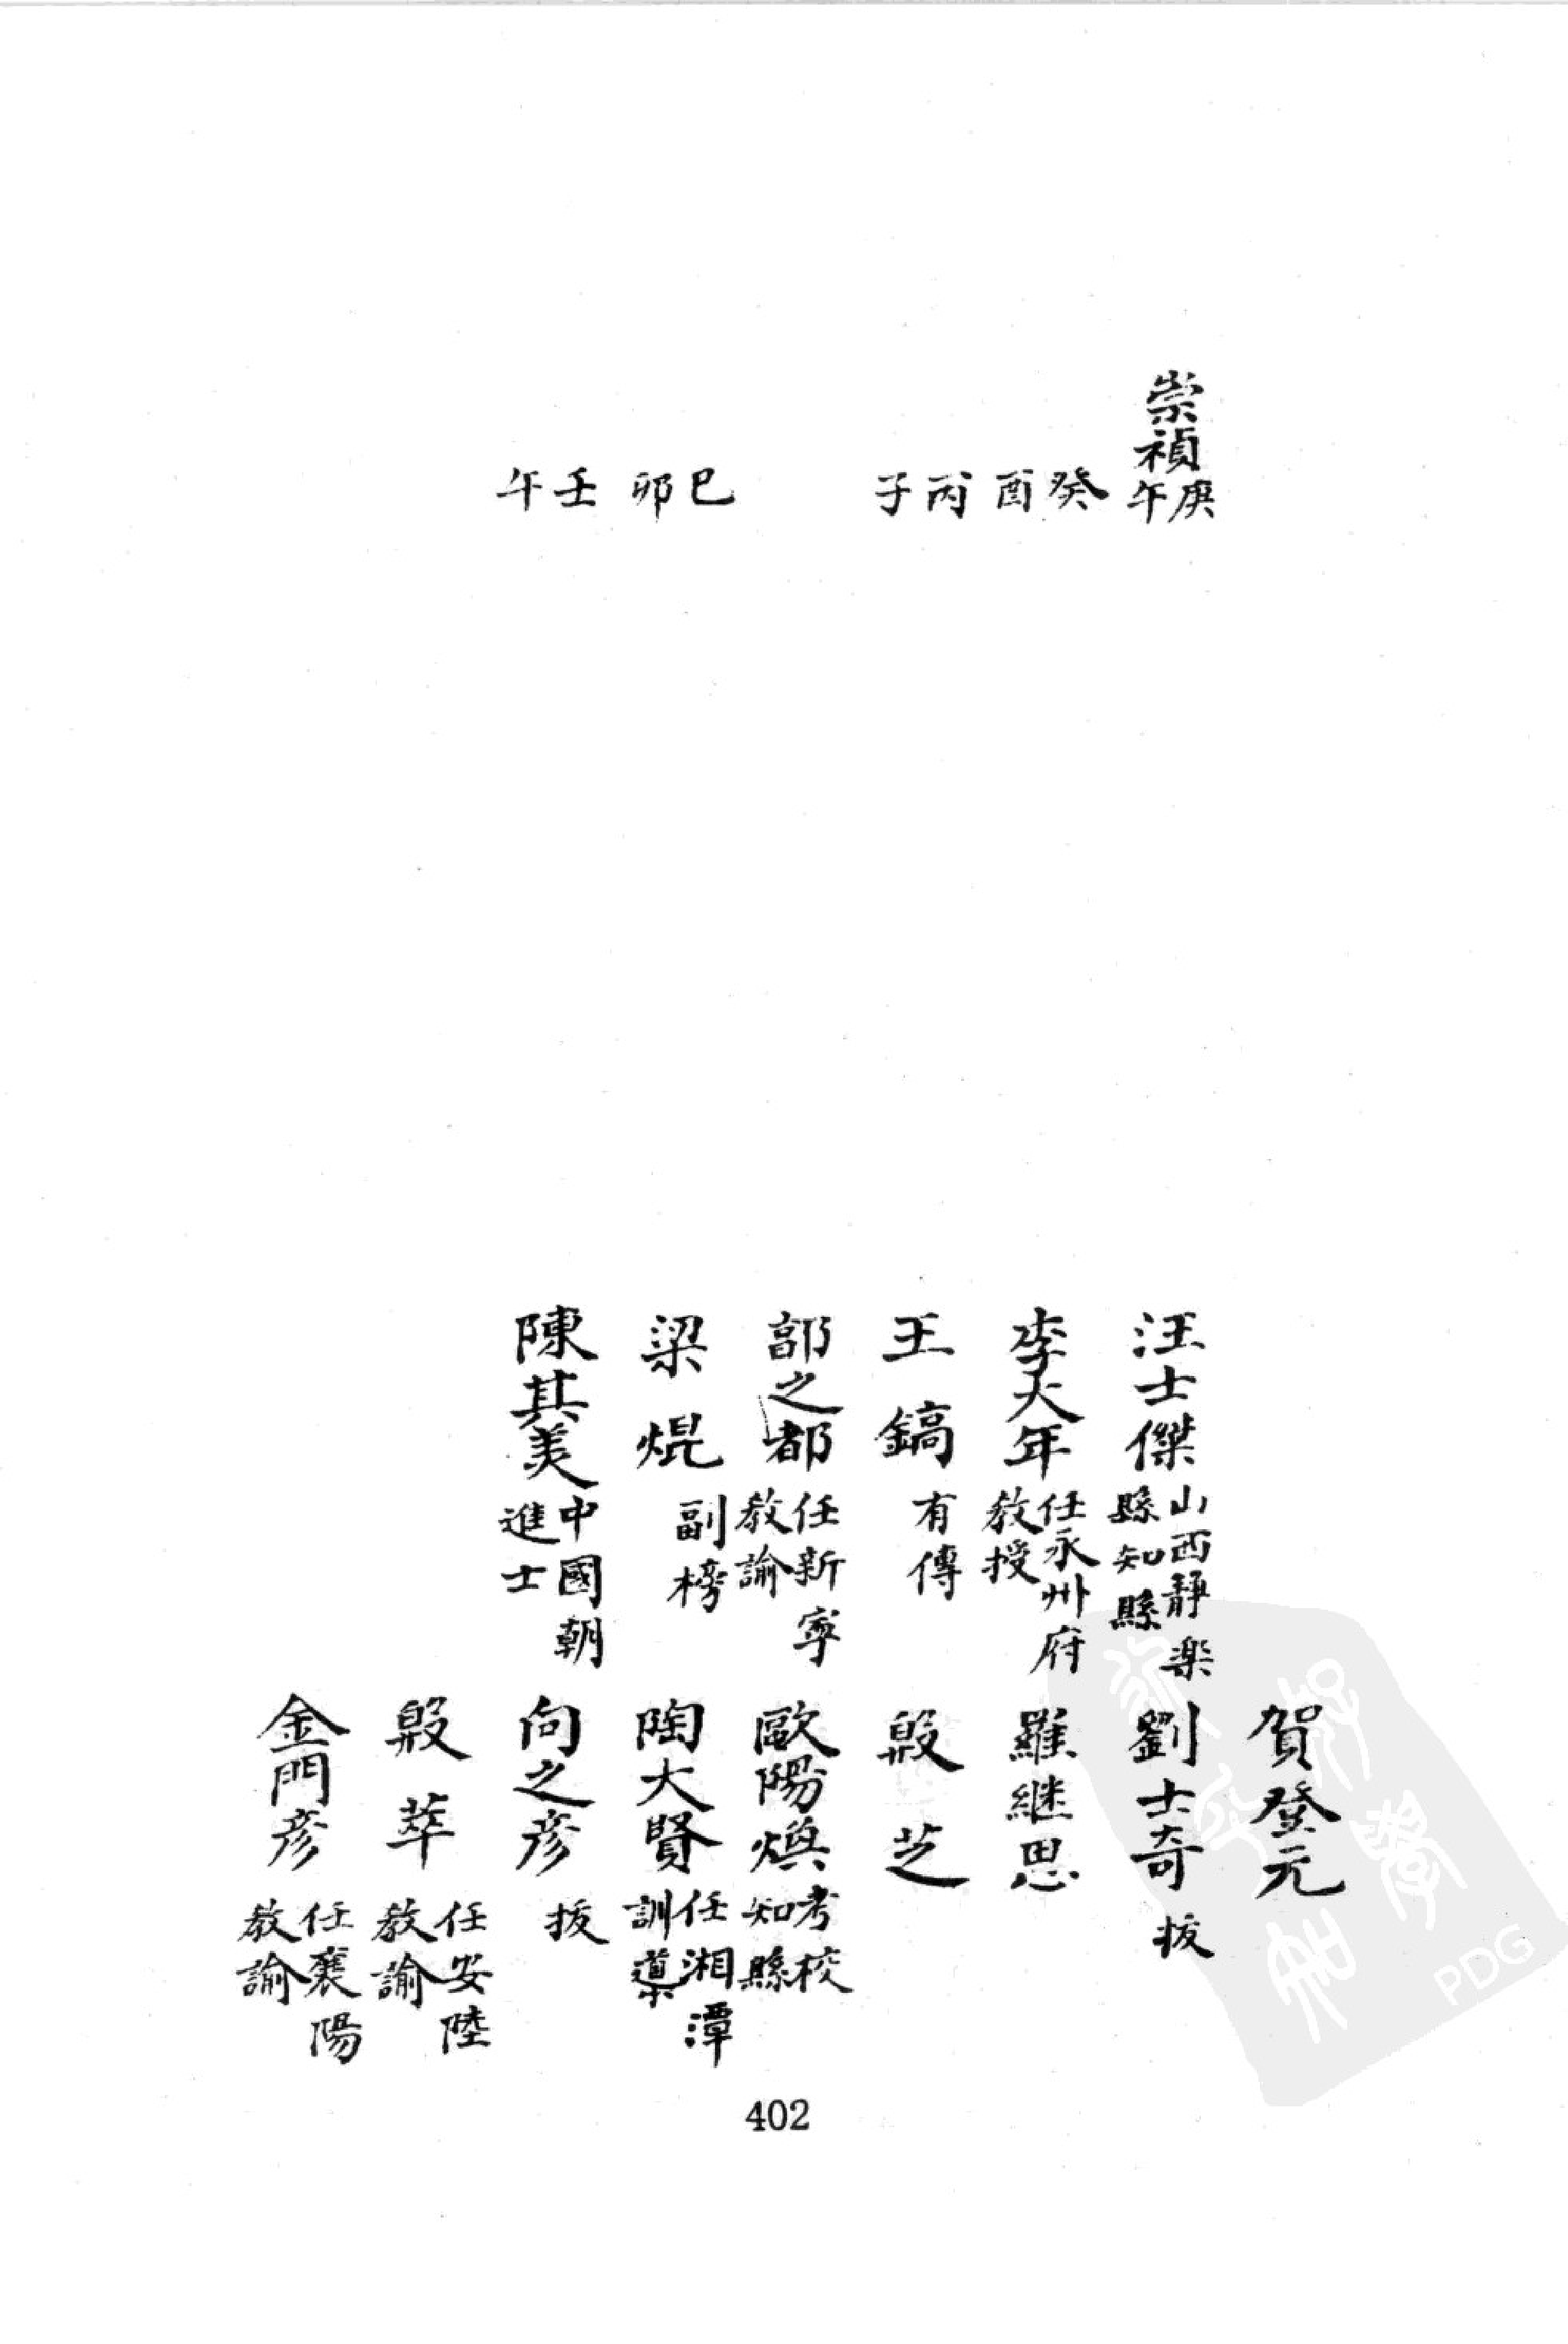 崇禎庚午
癸酉
丙子
己卯
壬午
汪士傑山西靜樂縣知縣
李大年任永州府教授
王鎬有傳
郭之都任新寧教諭
梁焜副榜
陳其美中國朝進士
賀登元
劉士奇拔
羅継思
殷芝
歐陽煥考校知縣
陶大賢任湘潭訓導
向之彦拔
殷萃任安陸教諭
金門彦任襄陽教諭
402
PDG